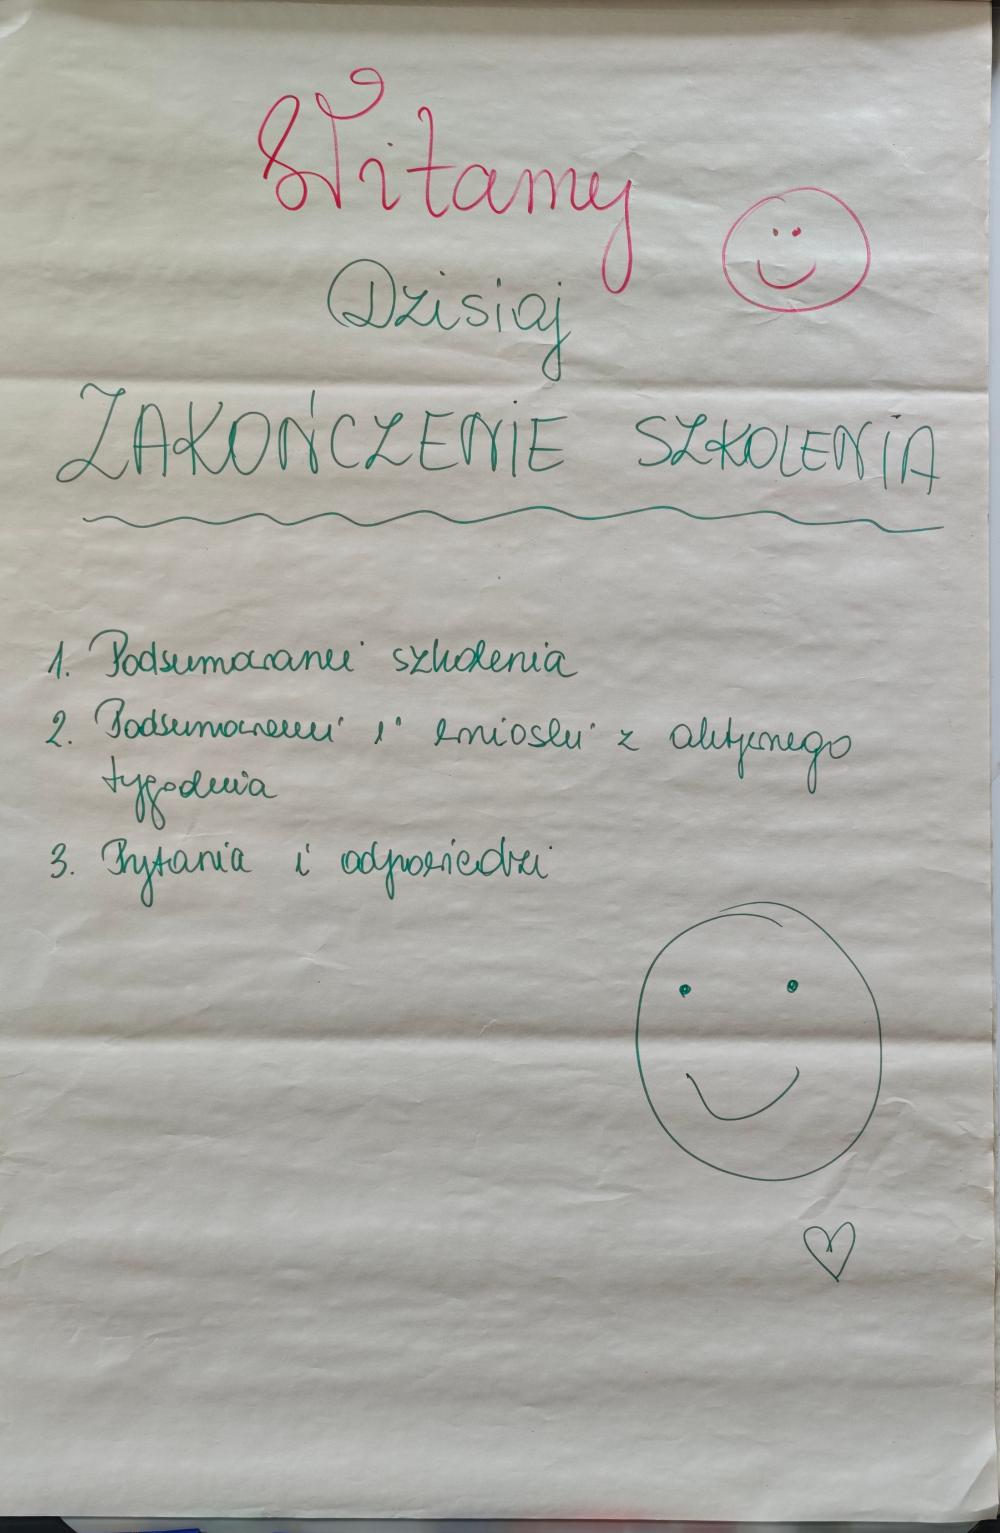 Witamy
Dzisiaj
ZAKOŃCZENIE SZKOLENIA
1. Podsumowanie szkolenia
2. Podsumowanie i wnioski z aktywnego
tygodnia
3. Pytania i odpowiedzi